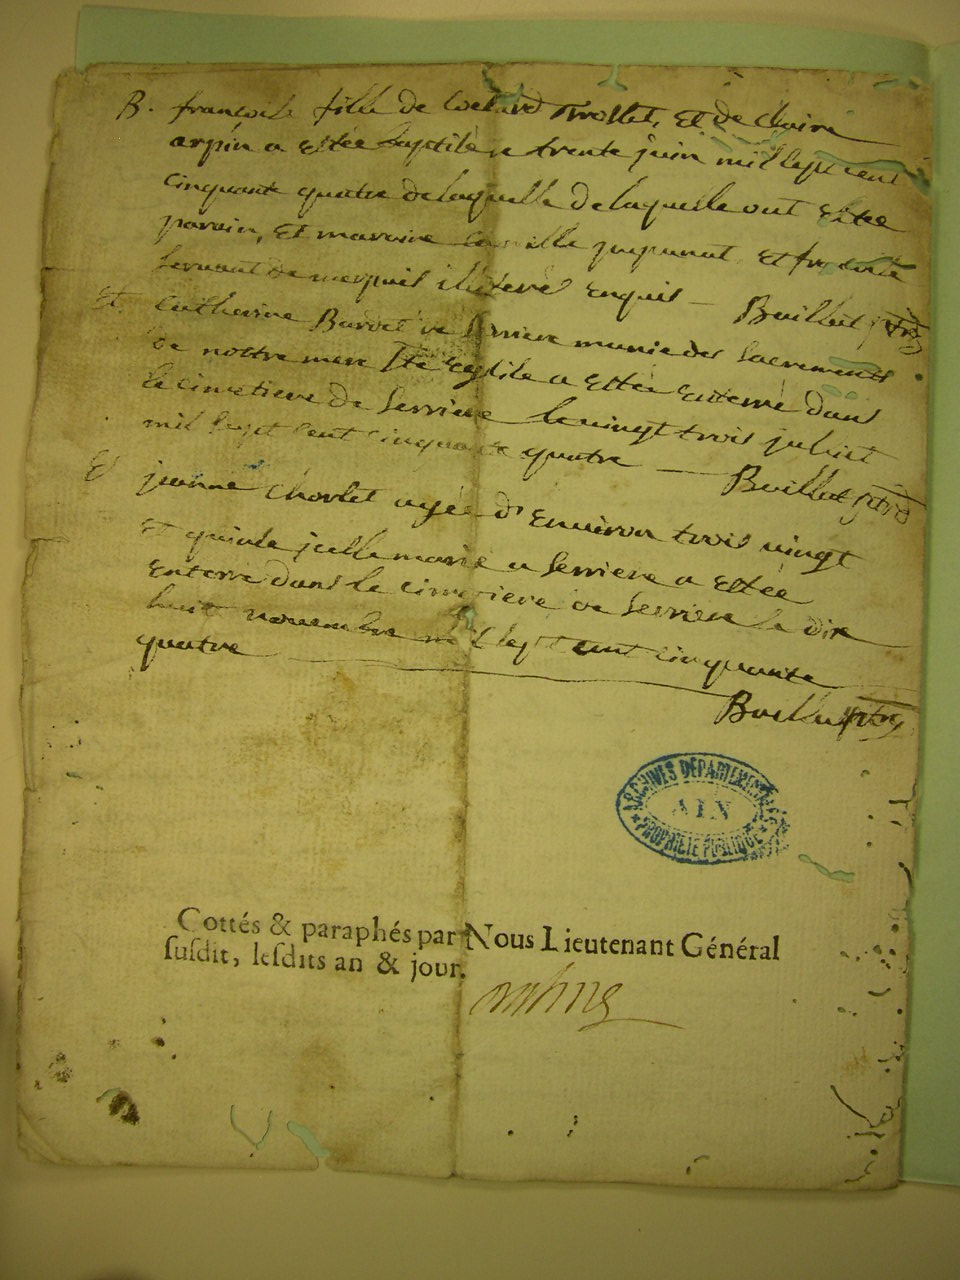 B. francoise fille de Trollet, et de claire
arpin a estée baptisée le trente juin mil sept cent
cinquante quatre de laquelle de laquelle ont estee
parain, et maraine camille et
servant de illiteré enquis — Baillat ptre
Et. catherine Bardet de serriere munie des sacrements
de nostre mere ste eglise a estée enterré dans
le cimetiere de serriere le vingt trois juliet
mil sept cent cinquante quatre — Baillat ptre
Et jeanne chorlet agée d'environ trois vingt
et quinse marié a serriere a estée
enterré dans le cimetiere de serriere le dix
huit novembre mil sept cent cinquante
quatre
Baillat ptre
ARCHIVES DÉPARTEMENTALES
AIN
PROPRIÉTÉ PUBLIQUE
Cottés & paraphés par Nous Lieutenant Général
ſuſdit, leſdits an & jour.